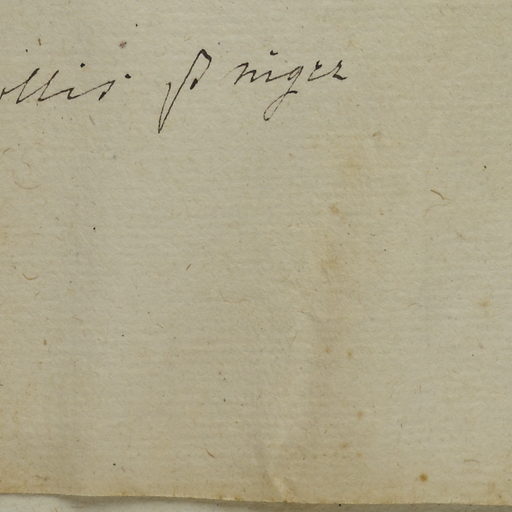 ollis β niger